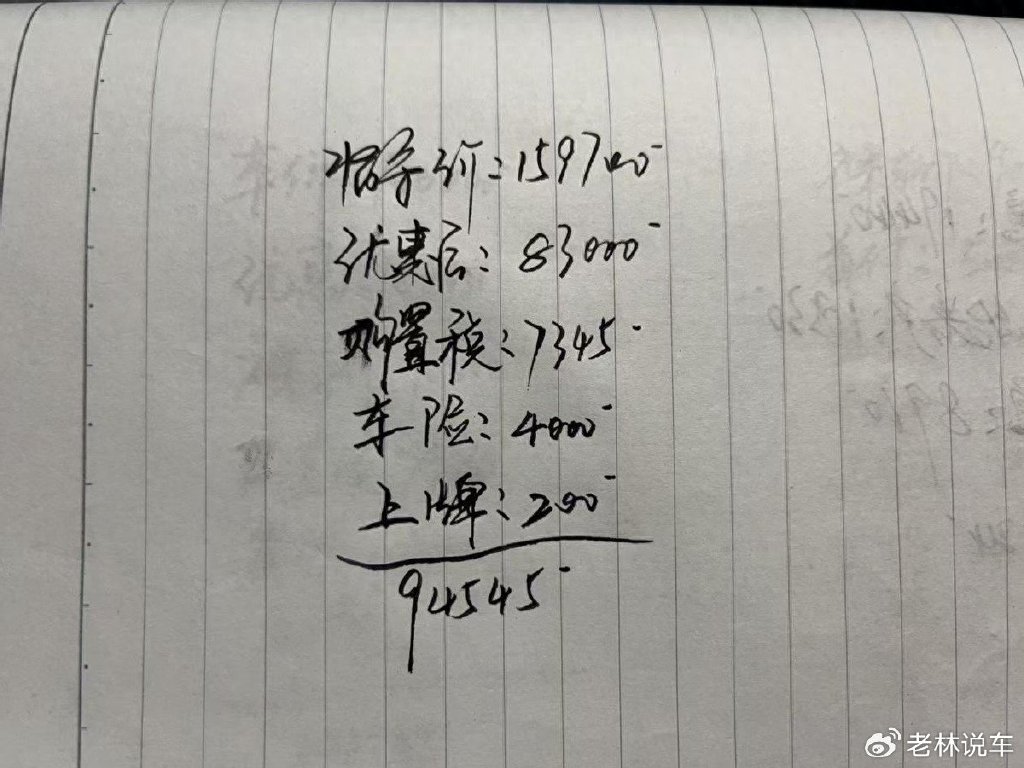 指导价：159700
优惠后：83000
购置税：7345
车险：4000
上牌：200
94545
老林说车